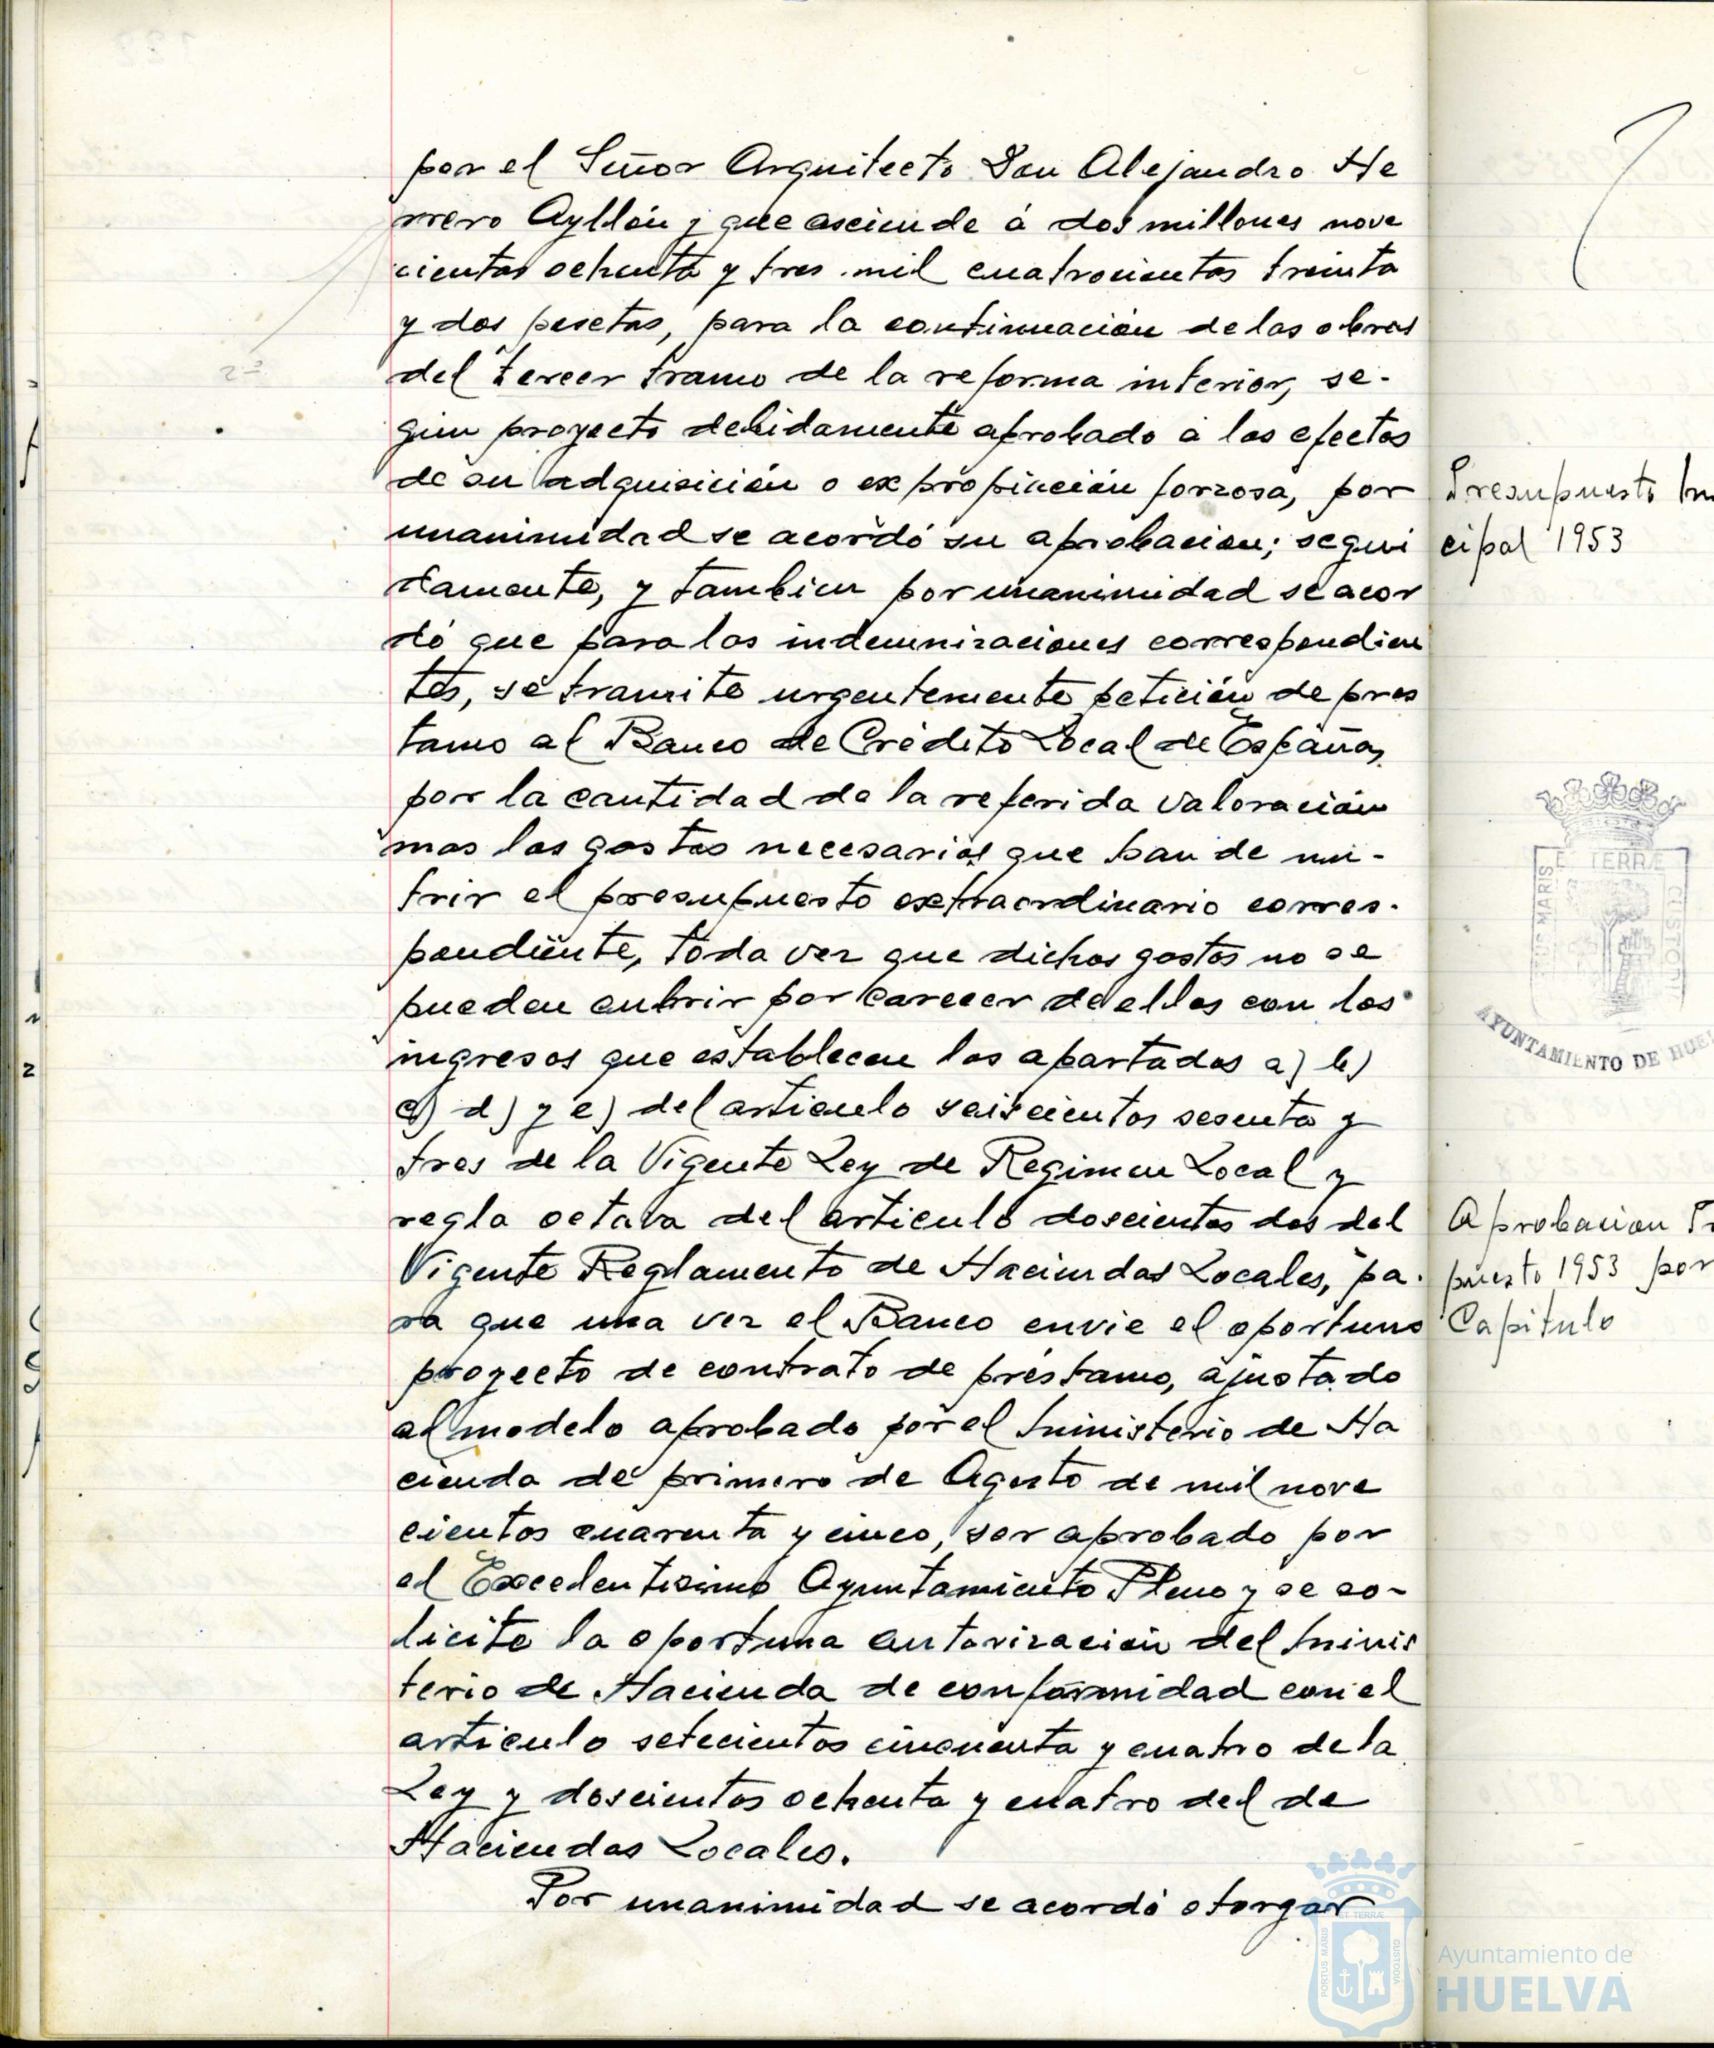 por el Señor Arquitecto Don Alejandro He
rrero Ayllón y que asciende á dos millones nove
cientas ochenta y tres mil cuatrocientas treinta
y dos pesetas, para la continuación de las obras
del tercer tramo de la reforma interior, se-
gun proyecto debidamente aprobado a los efectos
de su adquisición o expropiación forzosa, por
unanimidad se acordó su aprobacion; segui
damente, y tambien por unanimidad se acor
dó que para las indemnizaciones correspondien
tes, se tramite urgentemente petición de pres
tamo al Banco de Crédito Local de España,
por la cantidad de la referida valoración
mas los gastos necesarios que han de nu-
trir el presupuesto extraordinario corres-
pondiente, toda vez que dichos gastos no se
pueden cubrir por carecer de ellos con los
ingresos que establecen los apartados a) b)
c) d) y e) del articulo seiscientos sesenta y
tres de la Vigente Ley de Regimen Local y
regla octava del articulo doscientos dos del
Vigente Reglamento de Haciendas Locales, pa-
ra que una vez el Banco envie el oportuno
proyecto de contrato de préstamo, ajustado
al modelo aprobado por el Ministerio de Ha
cienda de primero de Agosto de mil nove
cientos cuarenta y cinco, ser aprobado por
el Excelentisimo Ayuntamiento Pleno y se so-
licite la oportuna autorización del Minis
terio de Hacienda de conformidad con el
articulo setecientos cincuenta y cuatro de la
Ley y doscientos ochenta y cuatro del de
Haciendas Locales.
Por unanimidad se acordó otorgar
Presupuesto
cipal 1953
ET TERRÆ
MARIS
CUSTODI
AYUNTAMIENTO DE HUEL
Aprobacion
puesto 1953 por
Capitulo
PORTUS MARIS ET TERRÆ CUSTODIA
Ayuntamiento de
HUELVA